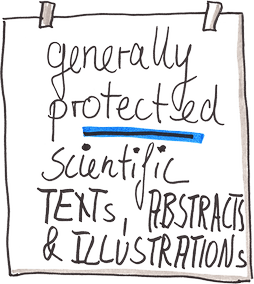 generally
protected
scientific
TEXTs, ABSTRACTS
& ILLUSTRATIONs